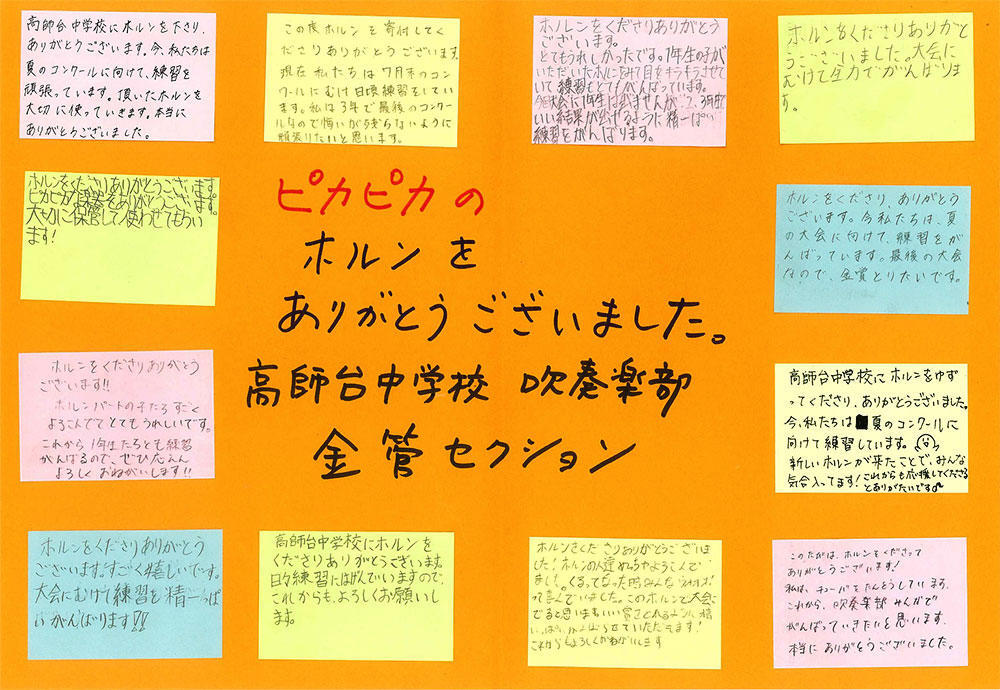 高師台中学校にホルンを下さり、
ありがとうございます。今、私たちは
夏のコンクールに向けて、練習を
頑張っています。頂いたホルンを
大切に使っていきます。本当に
ありがとうございました。
この度ホルンを寄付してく
ださりありがとうございます。
現在私たちは7月末のコン
クールにむけ日頃練習をしてい
ます。私は3年で最後のコンクー
ルなので悔いが残らないように
頑張りたいと思います。
ホルンをくださりありがとう
ございます。
とてもうれしかったです。1年生の子が
いただいたホルンを 目をキラキラさせて
いて練習をとてもがんばっています。
大会に1年生は出ませんが 2、3年生で
いい結果が出せるように精一ぱい
練習をがんばります。
ホルンをくださりありがと
うございました。大会に
むけて全力でがんばりま
す。
ホルンをくださりありがとうございます。
ピカピカな楽器をありがとうございます。
大切に保管して使わせてもらい
ます!
ピカピカの
ホルンを
ありがとうございました。
高師台中学校 吹奏楽部
金管セクション
ホルンをくださり、ありがとう
ございます。今私たちは、夏
の大会に向けて、練習をが
んばっています。最後の大会
なので、金賞とりたいです。
ホルンをくださりありがとう
ございます!!
ホルンパートの子たちすごく
よろこんでてとてもうれしいです。
これから1年生たちとも練習
がんばるので、ぜひ
よろしくおねがいします!!
高師台中学校にホルンをゆず
ってくださり、ありがとうございました。
今、私たちは 夏のコンクールに
向けて練習しています。
新しいホルンが来たことで、みんな
気合入ってます!これからも応援してくださる
とありがたいです
ホルンをくださりありがとう
ございます。すごく嬉しいです。
大会にむけて練習を精一っぱ
いがんばります!!
高師台中学校にホルンを
くださりありがとうございます。
日々練習にはげんでいますので、
これからも、よろしくお願いし
ます。
ホルンをくださりありがとうございま
した!ホルンの人達もよろこんで
いました。
って喜んでいました。このホルンで大会に
でると思います。
いっぱい させていただきます!
これからもよろしくおねがいします
このたびは、ホルンをくださって
ありがとうございます!
私は、チューバをたんとうしています。
これから、吹奏楽部みんなで
がんばっていきたいと思います。
本当にありがとうございました。